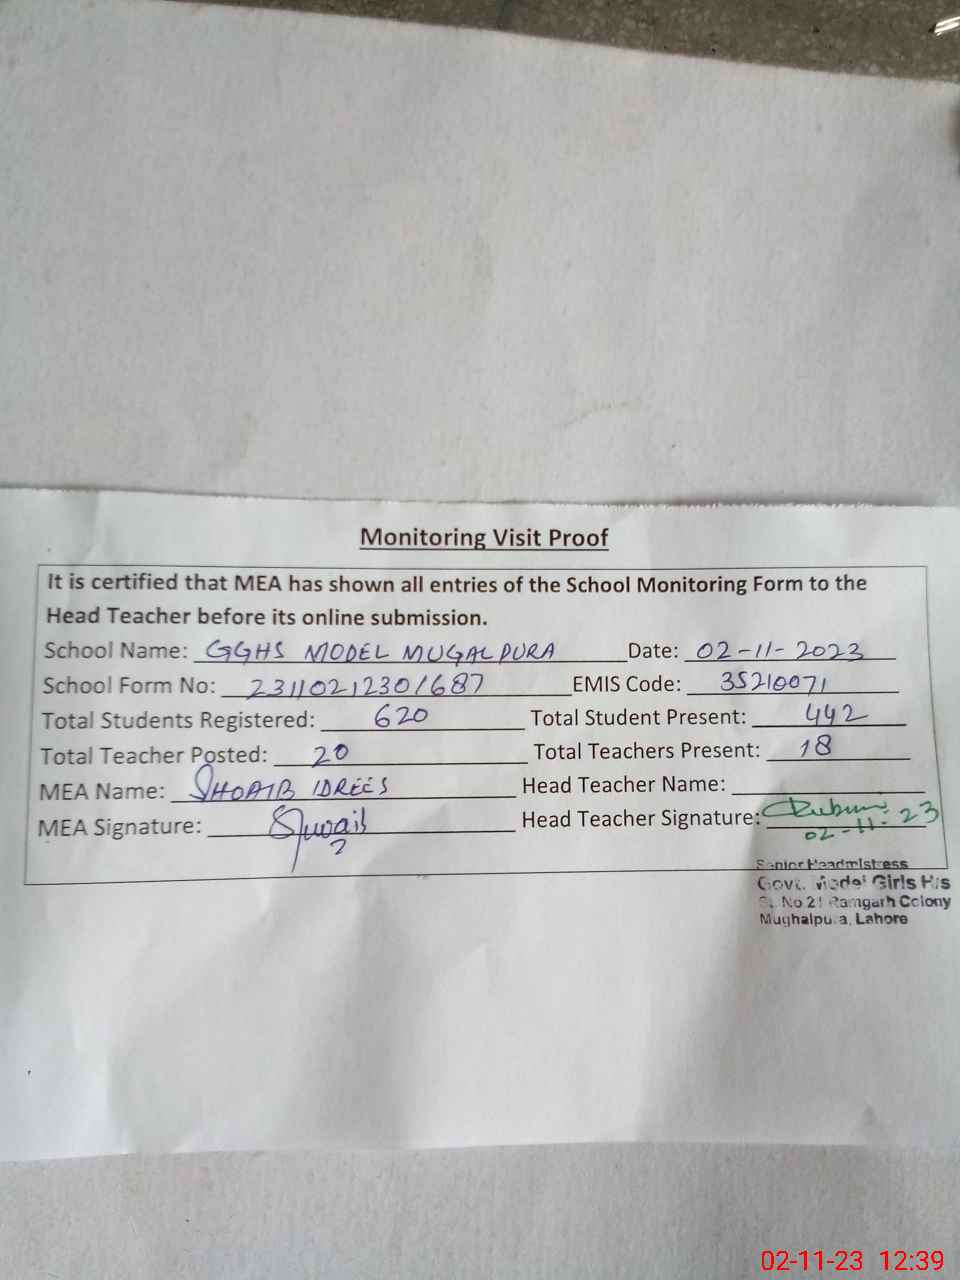 Monitoring Visit Proof
It is certified that MEA has shown all entries of the School Monitoring Form to the
Head Teacher before its online submission.
School Name: GGHS MODEL MUGALPURA Date: 02-11-2023
School Form No: 23110212301687 EMIS Code: 35210071
Total Students Registered: 620 Total Student Present: 442
Total Teacher Posted: 20 Total Teachers Present: 18
MEA Name: SHOAIB IDREES Head Teacher Name:
MEA Signature: Shoaib Head Teacher Signature:
02-11-23
Senior Headmistress
Govt. Model Girls H/s
St. No 21 Ramgarh Colony
Mughalpura, Lahore
02-11-23 12:39